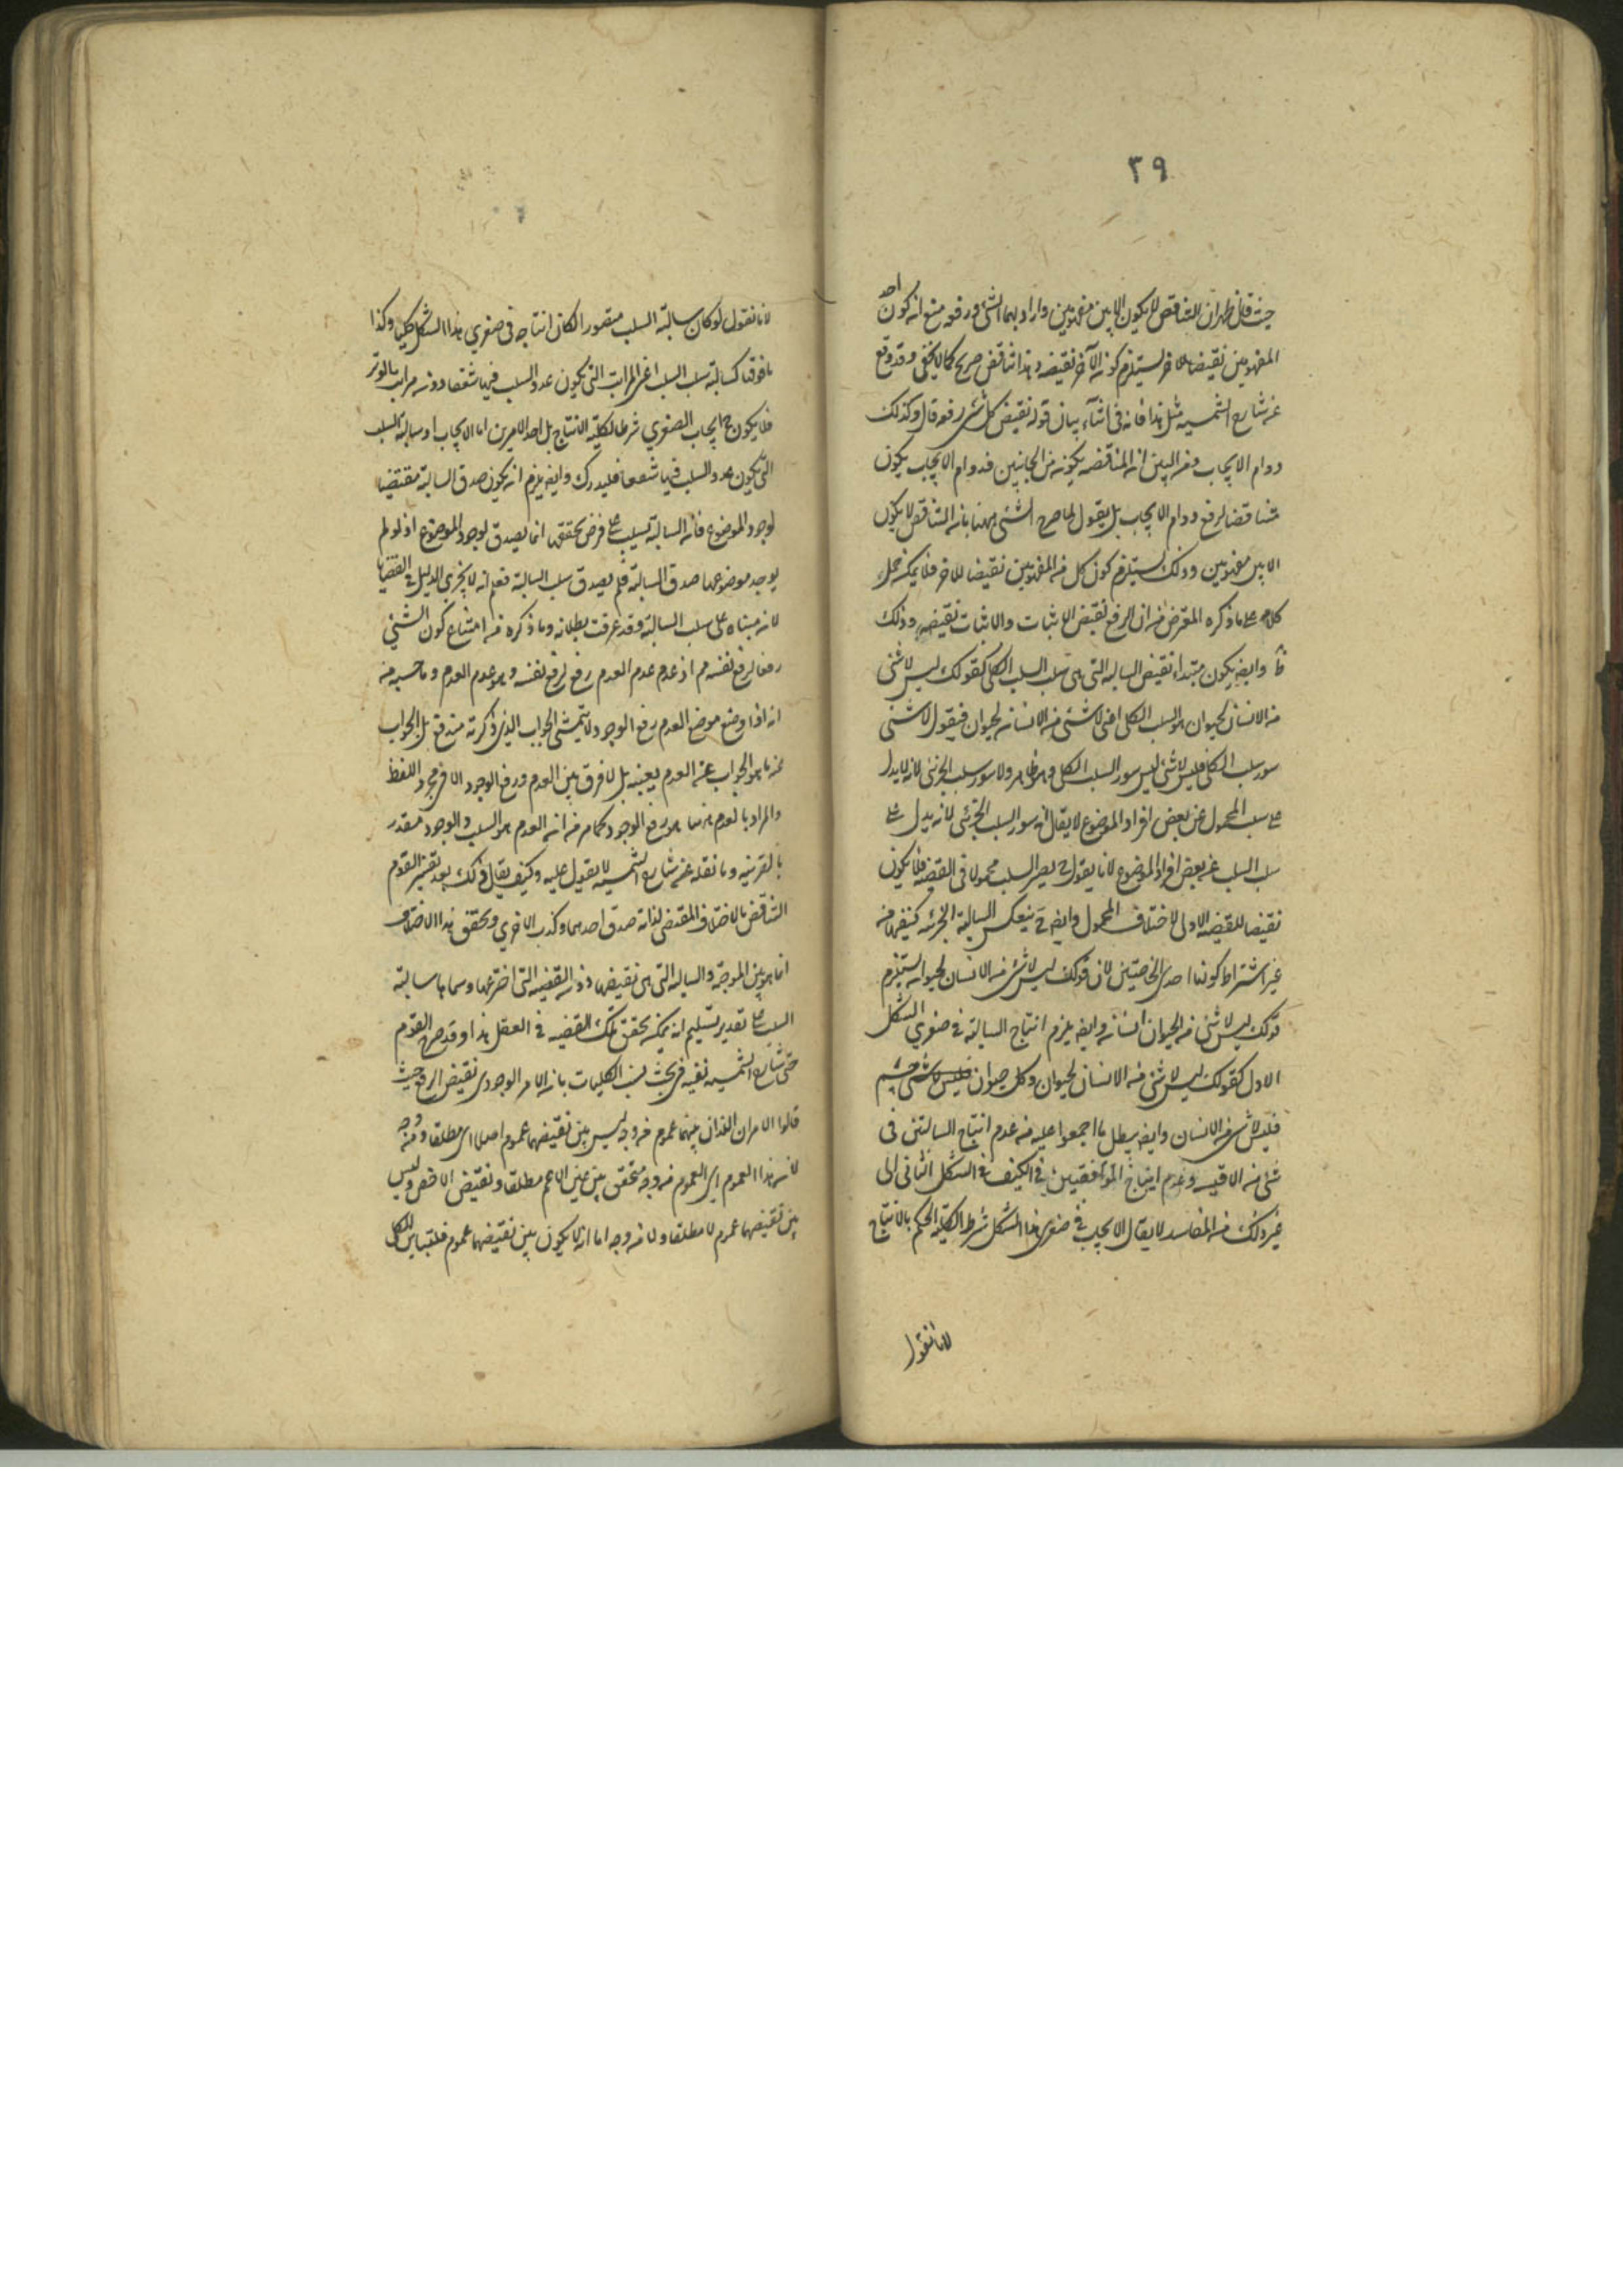 ٣٩
حيث قال فظهر ان التناقض لا يكون الا بين مفهومين واراد بهما الشئ ورفعه منع انه كون احد
المفهومين نقيضا للاخر يستلزم كونه الآخر نقيضه وهذا تناقض صريح كما لا يخفى وقد وقع
عن شارح الشمسيه مثل هذا فانه في اثناء بيان قوله نقيض كل شئ رفعه قال وكذلك
دوام الايجاب ومن البين انه المناقضه يكون من الجانبين فدوام الايجاب يكون
مناقضا لرفع دوام الايجاب بل يقول لما صرح الشئ ههنا بانه التناقض لا يكون
الا بين مفهومين وذلك يستلزم كون كل من المفهومين نقيضا للاخر فلا يمكن حمل
كلامه على ما ذكره المعترض من ان الرفع نقيض الاثبات والاثبات نقيضه وذلك
وايضا يكون مبتداء نقيض السالبه التي هي سلب السلب الكلي كقولك ليس لا شئ
من الانسان بحيوان هو السلب الكلي اعني لا شئ من الانسان بحيوان فيقول لا شئ
سور سلب الكلي فليس لا شئ ليس سور السلب الكلي وهو ظاهر ولا سور سلب الجزئي لانه لا يدل
على سلب المحمول عن بعض افراد الموضوع لا يقال انه سور السلب الجزئي لانه يدل على
سلب السلب عن بعض افراد الموضوع لانا يقول ح يصير السلب محمولا في القضيه فلا يكون
نقيضا للقضيه الاولى لاختلاف المحمول وايضا ح ينعكس السالبة الجزئيه كنفيها من
غير اشتراط كونها احدى الخاصتين لان قولك ليس لا شئ من الانسان بحيوان يستلزم
قولك ليس لا شئ من الحيوان انسان وايضا يلزم انتاج السالبة في صغرى الشكل
الاول كقولك ليس لا شئ من الانسان بحيوان وكل حيوان فليس لا شئ جسم
فليس لا شئ من الانسان وايضا يبطل ما اجمعوا عليه من عدم انتاج السالبتين في
شئ من الاقيسه وعدم انتاج المتوافقتين في الكيف في الشكل الثاني الى
غير ذلك من المفاسد لا يقال الايجاب في صغرى هذا الشكل شرط لكلية الحكم بالانتاج
لانا نقول
لانا نقول لو كان سالبة السلب متصورا لكان انتاجه في صغرى هذا الشكل كليا وكذا
ما فوقها كسالبة سلب السلب اعني المراتب التي يكون عدد السلب فيها شفعا دون مراتب الوتر
فلا يكون ح ايجاب الصغرى شرطا لكلية الانتاج بل احد الامرين اما الايجاب او سالبة السلب
التي يكون عدد السلب فيها شفعا فليدرك وايضا يلزم انه يكون صدق السالبة مقتضيا
لوجود الموضوع فانه السالبة لسلب على فرض تحققها انما يصدق لوجود الموضوع اذ لو لم
يوجد موضوعها صدق السالبة فلم يصدق سلب السالبة فعلم انه لا يجري الدليل في القضايا
لانه مبناه على سلب السالبة وقد عرفت بطلانه وما ذكره من امتناع كون الشئ
رفعا لرفع نفسه مم اذ عدم عدم العدم رفع لرفع نفسه وهو عدم العدم وما حسبه من
انه اذا وضع موضع العدم رفع الوجود لا يتمشى الجواب الذي ذكرته مندفع بل الجواب
عنه هو الجواب عن العدم بعينه بل لا فرق بين العدم ورفع الوجود الا في مجرد اللفظ
والمراد بالعدم ههنا هو رفع الوجود كما مر من انه العدم هو السلب والوجود مقدر
بالقرينه وما نقله عن شارح الشمسيه لا يقول عليه وكيف يقال ذلك بعد تفسير القوم
التناقض بالاختلاف المقتضى لذاته صدق احدهما وكذب الاخرى وتحقق هذا الاختلاف
انما هو بين الموجبه والسالبه التي هي نقيضها دون القضيه التي اخترعها وسماها سالبة
السلب على تقدير تسليم انه يمكن تحقق تلك القضيه في العقل هذا وقد صرح القوم
حتى شارح الشمسيه نفسه في بحث نسب الكليات بانه الامر الوجودي نقيض الرفع حيث
قالوا الامران اللذان بينهما عموم من وجه ليس بين نقيضيهما عموم اصلا اي مطلقا ومن وجه
لان هذا العموم اي العموم من وجه متحقق بين عين الاعم مطلقا ونقيض الاخص وليس
بين نقيضيهما عموم لا مطلقا ولا من وجه اما انه لا يكون بين نقيضيهما عموم فلتباين الكلي